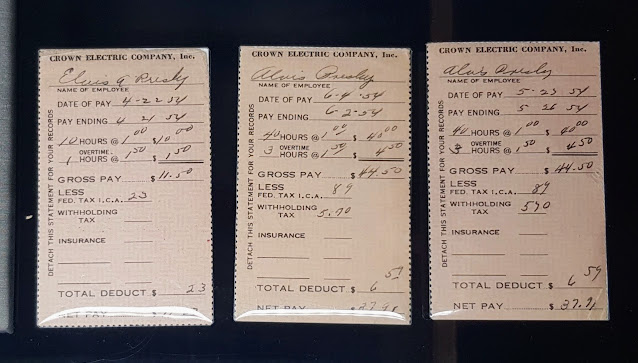 CROWN ELECTRIC COMPANY, Inc.
Elvis A Presley
NAME OF EMPLOYEE
DATE OF PAY 4-22 54
PAY ENDING 4 21 54
10 HOURS @ 1 00 $10 00
1 OVERTIME HOURS @ 1 50 $ 1 50
GROSS PAY $ 11.50
LESS
FED. TAX I.C.A. 23
WITHHOLDING TAX
INSURANCE
TOTAL DEDUCT $ 23
NET PAY
DETACH THIS STATEMENT FOR YOUR RECORDS
CROWN ELECTRIC COMPANY, Inc.
Alvis Presley
NAME OF EMPLOYEE
DATE OF PAY 6-4-54
PAY ENDING 6-2-54
40 HOURS @ 1 00 $ 40 00
3 OVERTIME HOURS @ 1 50 $ 4 50
GROSS PAY $ 44.50
LESS
FED. TAX I.C.A. 89
WITHHOLDING TAX 5.70
INSURANCE
TOTAL DEDUCT $ 6 59
NET PAY $ 37.91
DETACH THIS STATEMENT FOR YOUR RECORDS
CROWN ELECTRIC COMPANY, Inc.
Alvis Presley
NAME OF EMPLOYEE
DATE OF PAY 5-23 54
PAY ENDING 5 26 54
40 HOURS @ 1 00 $ 40 00
3 OVERTIME HOURS @ 1 50 $ 4 50
GROSS PAY $ 44.50
LESS
FED. TAX I.C.A. 89
WITHHOLDING TAX 5 70
INSURANCE
TOTAL DEDUCT $ 6 59
NET PAY $ 37.91
DETACH THIS STATEMENT FOR YOUR RECORDS